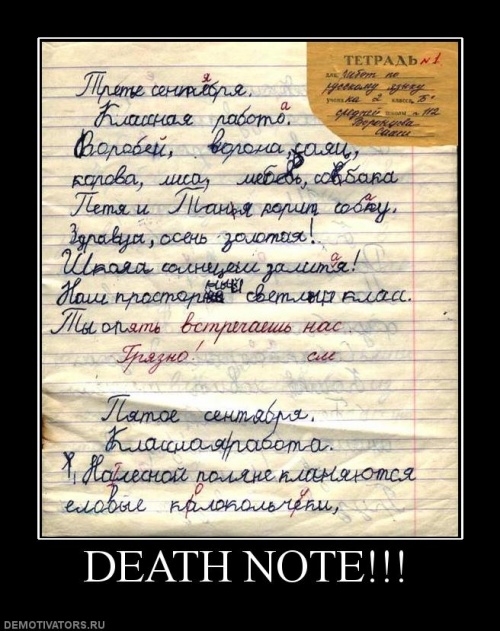 ТЕТРАДЬ №1
для работ по
русскому языку
учени на 2 класса "Б"
средней школы №112
Третье сентября.
Классная работа.
Воробей, ворона, заяц,
корова, лиса, лебедь, собака
Петя и Таня кормит собаку.
Здравцва, осень золотая!
Школа солнцем залитая!
Наш просторный светлый клас.
Ты опять встречаешь нас
Грязно! см
Пятое сентября.
Классная работа.
На лесной поляне кланяются
еловые колокольчики,
DEATH NOTE!!!
DEMOTIVATORS.RU